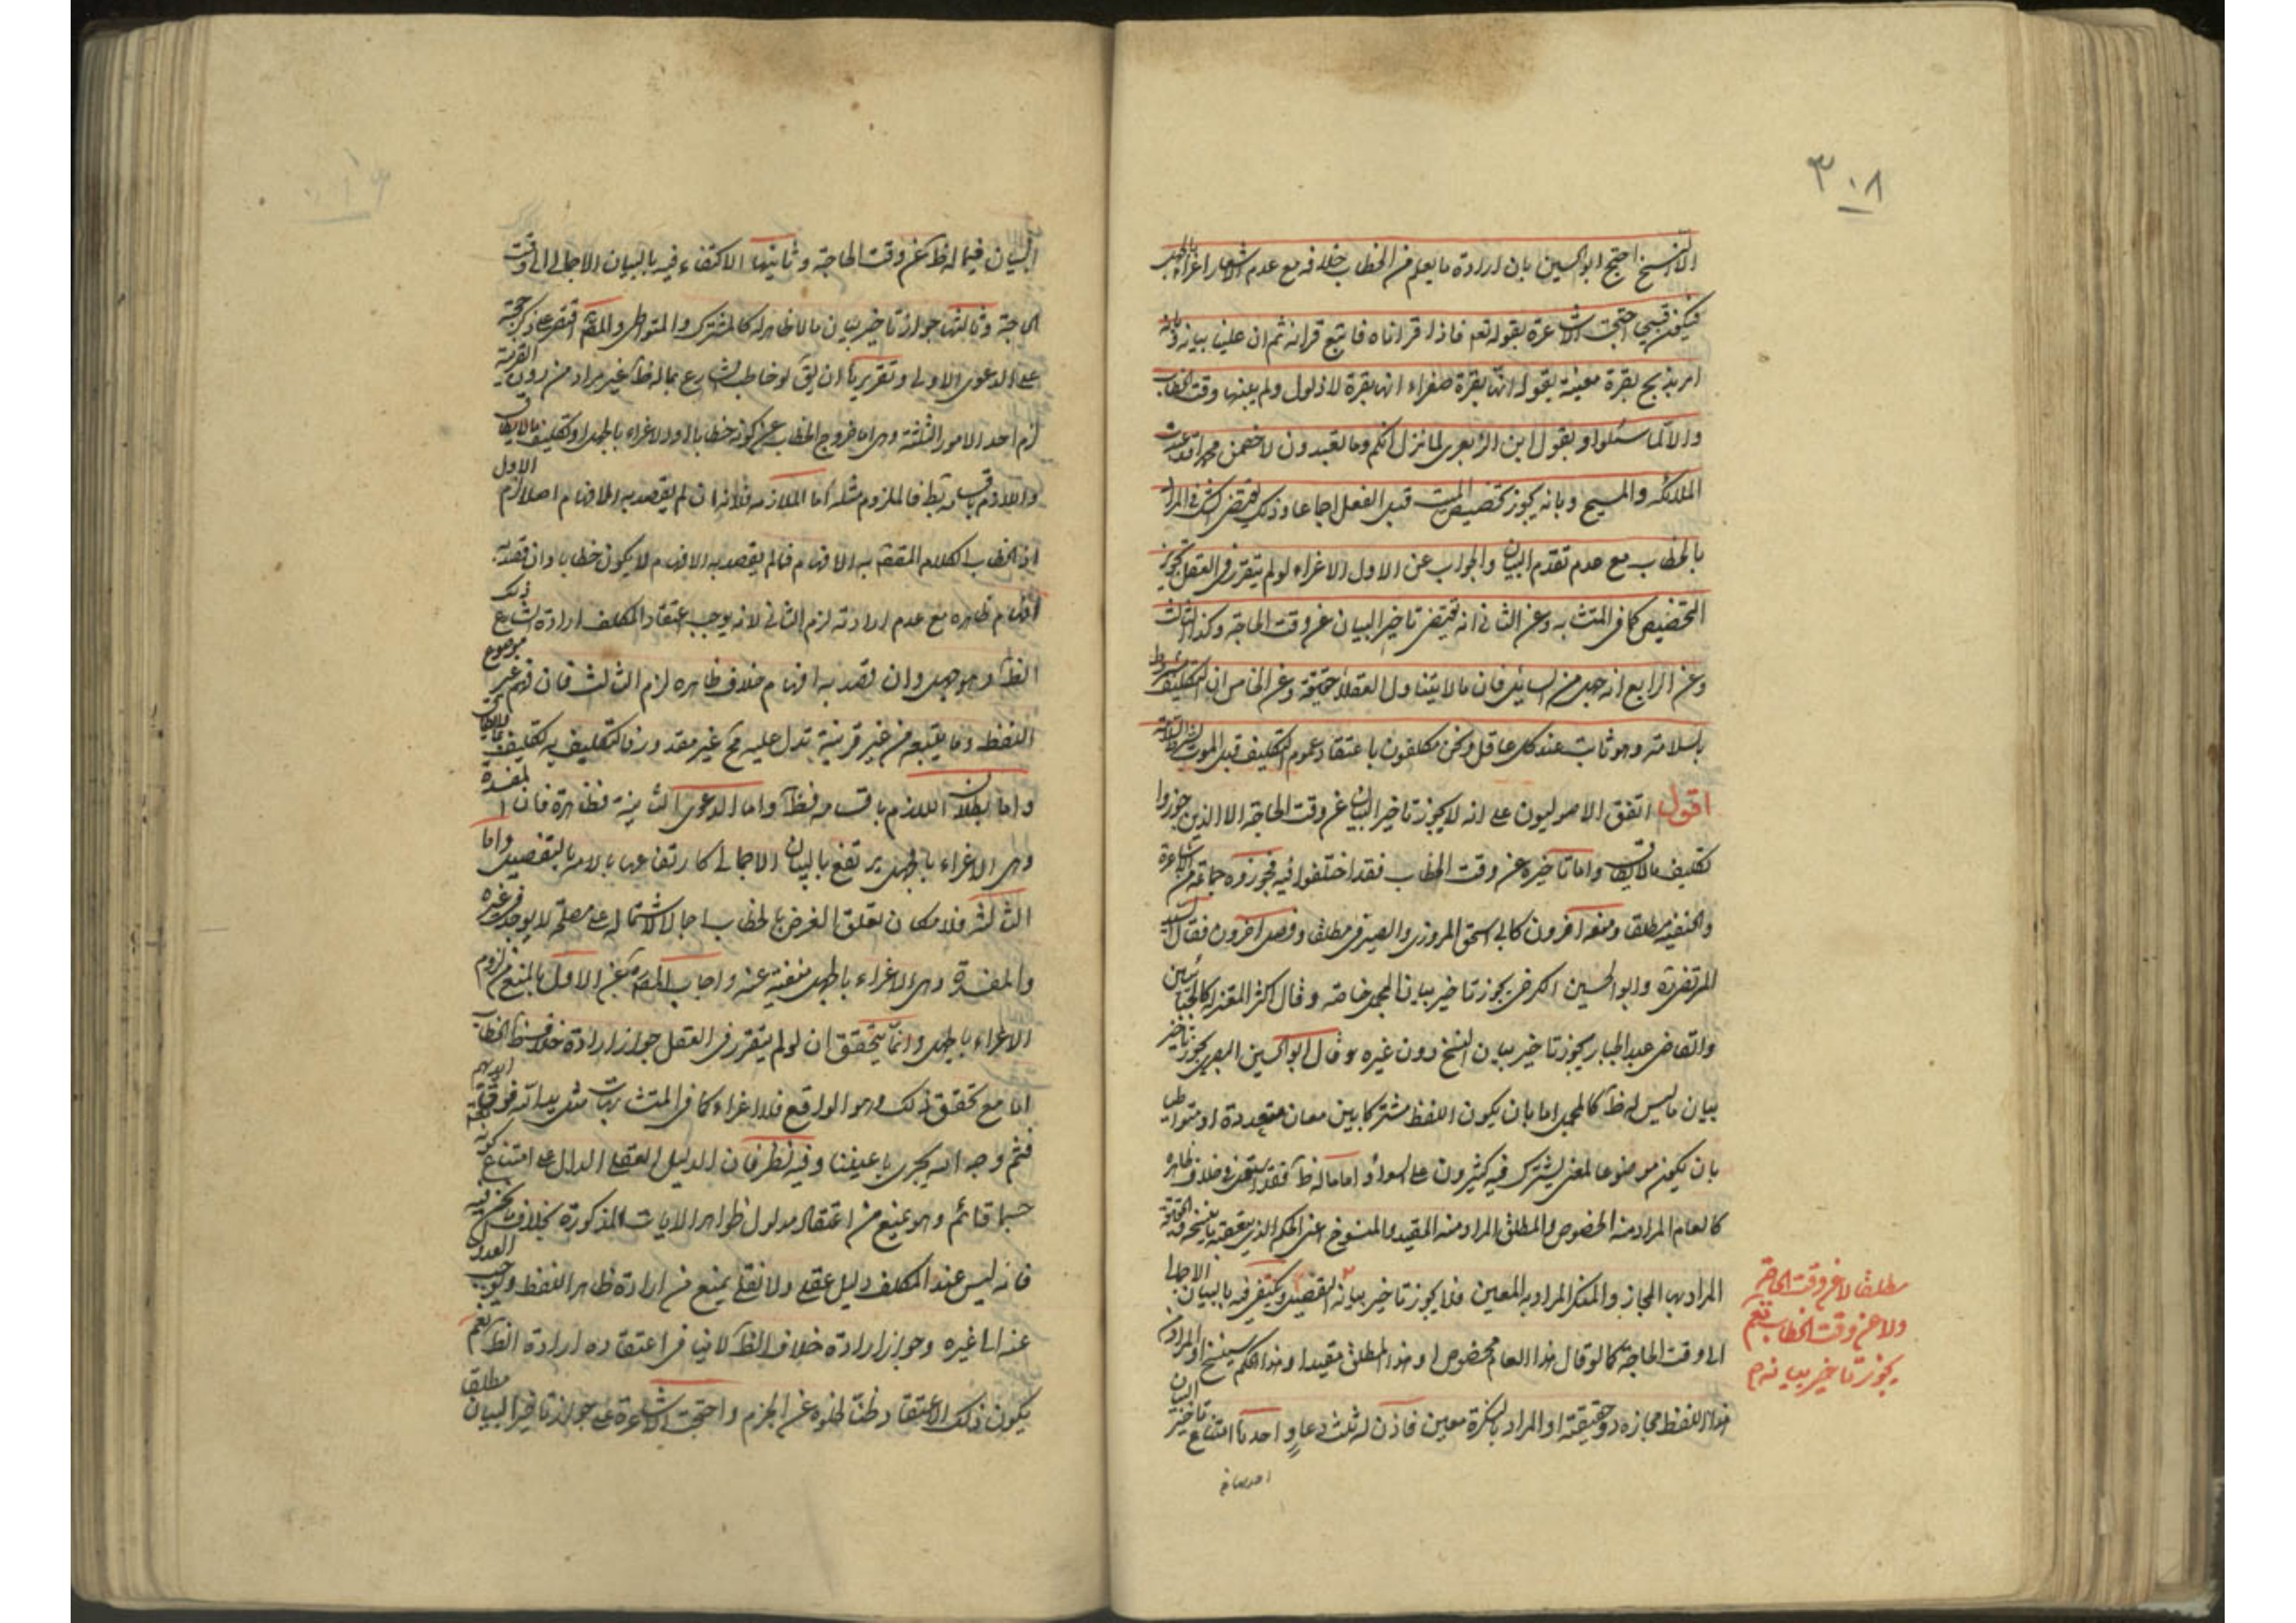 ٣٠٨
الا النسخ احتج ابو الحسين بان ارادة ما يعلم من الخطاب خلافه مع عدم الاشعار اغراء بالجهل
فيكون قبيحا احتجت الاشاعرة بقوله تعه فاذا قراناه فاتبع قرانه ثم ان علينا بيانه وبانه
امر بذبح بقرة معينة بقوله انها بقرة صفراء انها بقرة لا ذلول ولم يبينها وقت الخطاب
والا لما سئلوا وبقول ابن الزبعرى لما نزل انكم وما تعبدون لاخصمن محمدا قد عبدت
الملائكة والمسيح وبانه يجوز تخصيص الميت قبل الفعل اجماعا وذلك يقتضى الشك فى المراد
بالخطاب مع عدم تقدم البيان والجواب عن الاول الاغراء لو لم يتقرر فى العقل تجويز
التخصيص كما فى المتشابه وعن الثانى انه يقتضى تاخير البيان عن وقت الحاجة وكذا الثالث
وعن الرابع انه جهل من السائل فان ما لا يتناول العقلاء حقيقة وعن الخامس ان التكليف مشروط
بالسلامة وهو ثابت عند كل عاقل ونحن مكلفون باعتقاد عموم التكليف قبل الموت بشرط السلامة
اقول اتفق الاصوليون على انه لا يجوز تاخير البيان عن وقت الحاجة الا الذين جوزوا
تكليف ما لا يطاق واما تاخيره عن وقت الخطاب فقد اختلفوا فيه فجوزوه جماعة من الاشاعرة
والحنفية مطلقا ومنعه اخرون كابى اسحق المروزى والصيرفى مطلقا وفصل اخرون فقال السيد
المرتضى ره وابو الحسين الكرخى يجوز تاخير بيان المجمل خاصة وقال اكثر المعتزلة كالجبائيين
والقاضى عبد الجبار يجوز تاخير بيان النسخ دون غيره وقال ابو الحسين البصرى يجوز تاخير
بيان ما ليس له ظ كالمجمل اما بان يكون اللفظ مشتركا بين معان متعددة او متواطيا
بان يكون موضوعا لمعنى يشترك فيه كثيرون على السواء واما ما له ظ فقد استعمل فى خلاف ظاهره
كالعام المراد منه الخصوص والمطلق المراد منه المقيد والمنسوخ اعنى الحكم الذى يتعقبه ما ينسخه والحقيقة
المراد بها المجاز والمنكر المراد به المعين فلا يجوز تاخير بيانه التفصيلى ويكتفى فيه بالبيان الاجمالى
مطلقا لا عن وقت الحاجة
ولا عن وقت الخطاب نعم
يجوز تاخير بيانه م
الى وقت الحاجة كما لو قال هذا العام مخصوص او هذا المطلق مقيد او هذا الحكم سينسخ او المراد من
هذا اللفظ مجازه دون حقيقته او المراد بالنكرة معين فاذن له ثلث دعاو احدها امتناع تاخير البيان
البيان فيما له ظ عن وقت الحاجة وثانيها الاكتفاء فيه بالبيان الاجمالى الى وقت
الحاجة وثالثها جواز تاخير بيان ما لا ظاهر له كالمشترك والمتواطى والمصه اقتصر على ذكر حجة
على الدعوى الاولى وتقريرها ان يق لو خاطب الشارع بما له ظ غير مراد من دون القرينة
لزم احد الامور الثلثة وهى اما خروج الخطاب عن كونه خطابا او الاغراء بالجهل او تكليف ما لا يطاق
واللازم باقسامه بط فالملزوم مثله اما الملازمة فلانه ان لم يقصد به الافهام اصلا لزم الاول
اذ الخطاب الكلام المقصود به الافهام فما لم يقصد به الافهام لا يكون خطابا وان قصد به
افهام ظاهره مع عدم ارادته لزم الثانى لانه يوجب اعتقاد المكلف ارادة الشارع ذلك
الظ وهو جهل وان قصد به افهام خلاف ظاهره لزم الثالث فان فهم غير موضوع
اللفظ وما يتبعه من غير قرينة تدل عليه مح غير مقدور فالتكليف به تكليف بما لا يطاق
واما بطلان اللازم باقسامه فظ واما الدعوى الثانية فظاهرة فان المفسدة
وهى الاغراء بالجهل يرتفع بالبيان الاجمالى كارتفاعها بالبيان التفصيلى واما
الثالثة فلامكان تعلق الغرض بالخطاب اجمالا لاشتماله على مصلحة لا يوجد فى غيره
والمفسدة وهى الاغراء بالجهل منفية عنه واجاب المصه عن الاول بالمنع من لزوم
الاغراء بالجهل وانما يتحقق ان لو لم يتقرر فى العقل جواز ارادة خلاف ظاهر الخطاب
اما مع تحقق ذلك وهو الواقع فلا اغراء كما فى المتشابهات مثل يد الله فوق ايديهم
فثم وجه الله يجرى باعيننا وفيه نظر فان الدليل العقلى الدال على امتناع كونه
جسما قائم وهو يمنع من اعتقاد مدلول ظواهر الايات المذكورة بخلاف ما نحن فيه
فانه ليس عند المكلف دليل عقلى ولا نقلى يمنع من ارادة ظاهر اللفظ ويوجب العدول
عنه الى غيره وجواز ارادة خلاف الظ لا ينافى اعتقاده ارادة الظ نعم
يكون ذلك الاعتقاد ظنا لخلوه عن الجزم واحتجت الاشاعرة على جواز تاخير البيان مطلقا